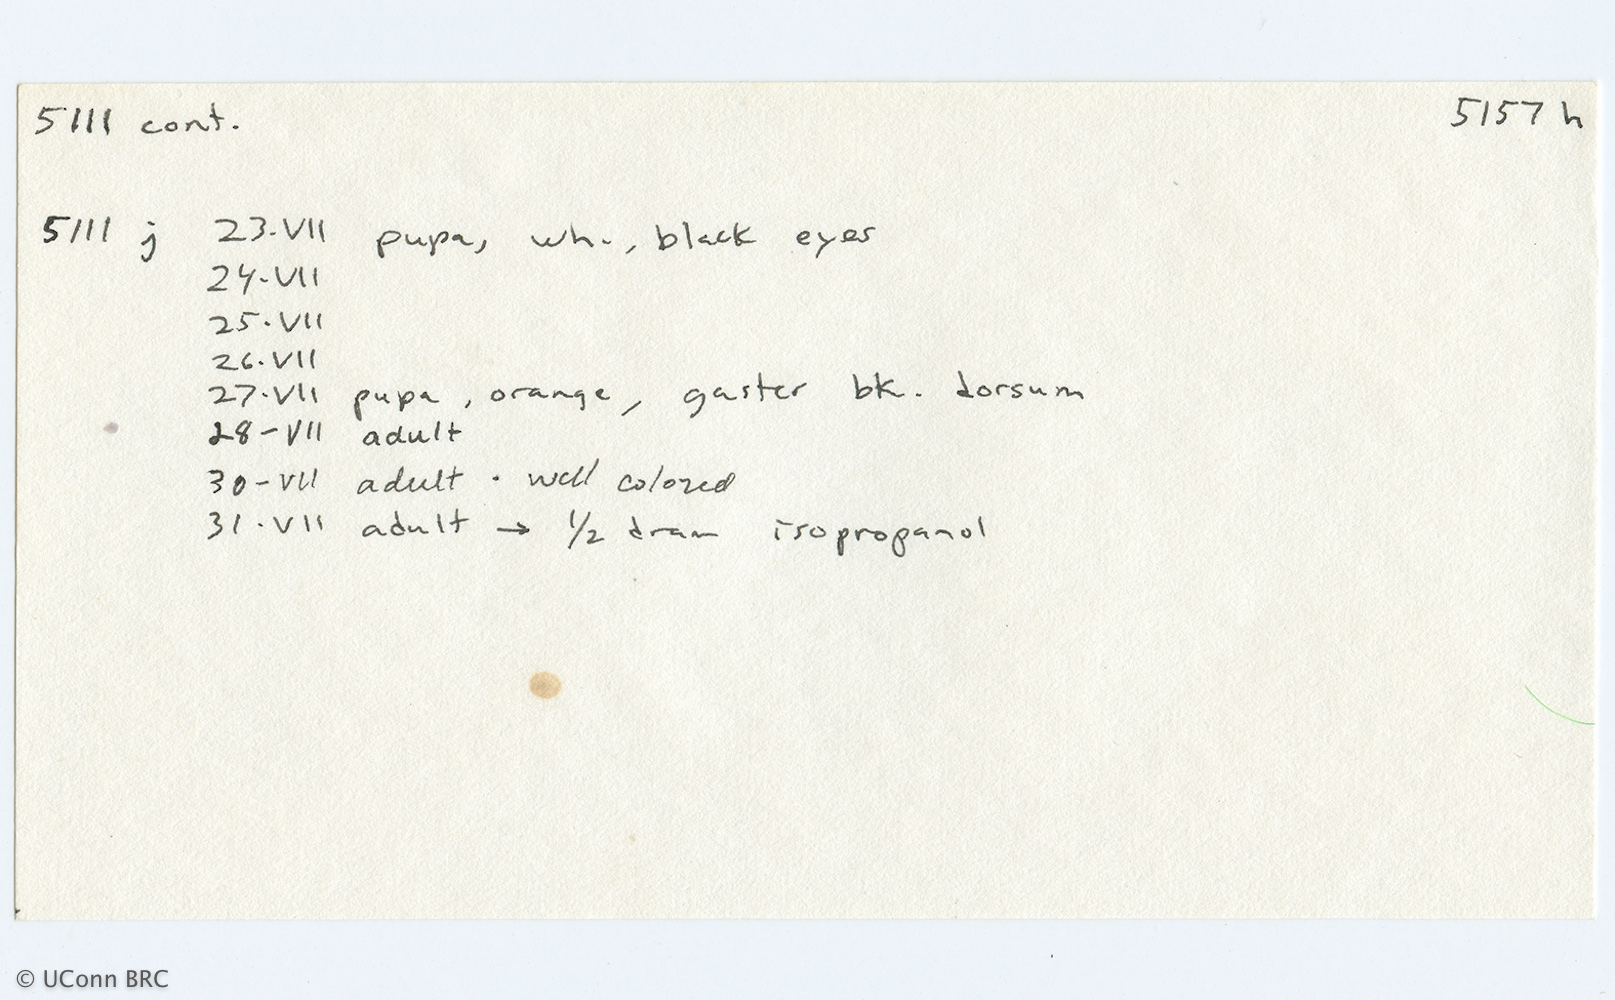 5111 cont. 5157 h
5111 j 23.VII pupa, wh., black eyes
24.VII
25.VII
26.VII
27.VII pupa, orange, gaster bk. dorsum
28-VII adult
30-VII adult. well colored
31.VII adult → 1/2 dram isopropanol
© UConn BRC